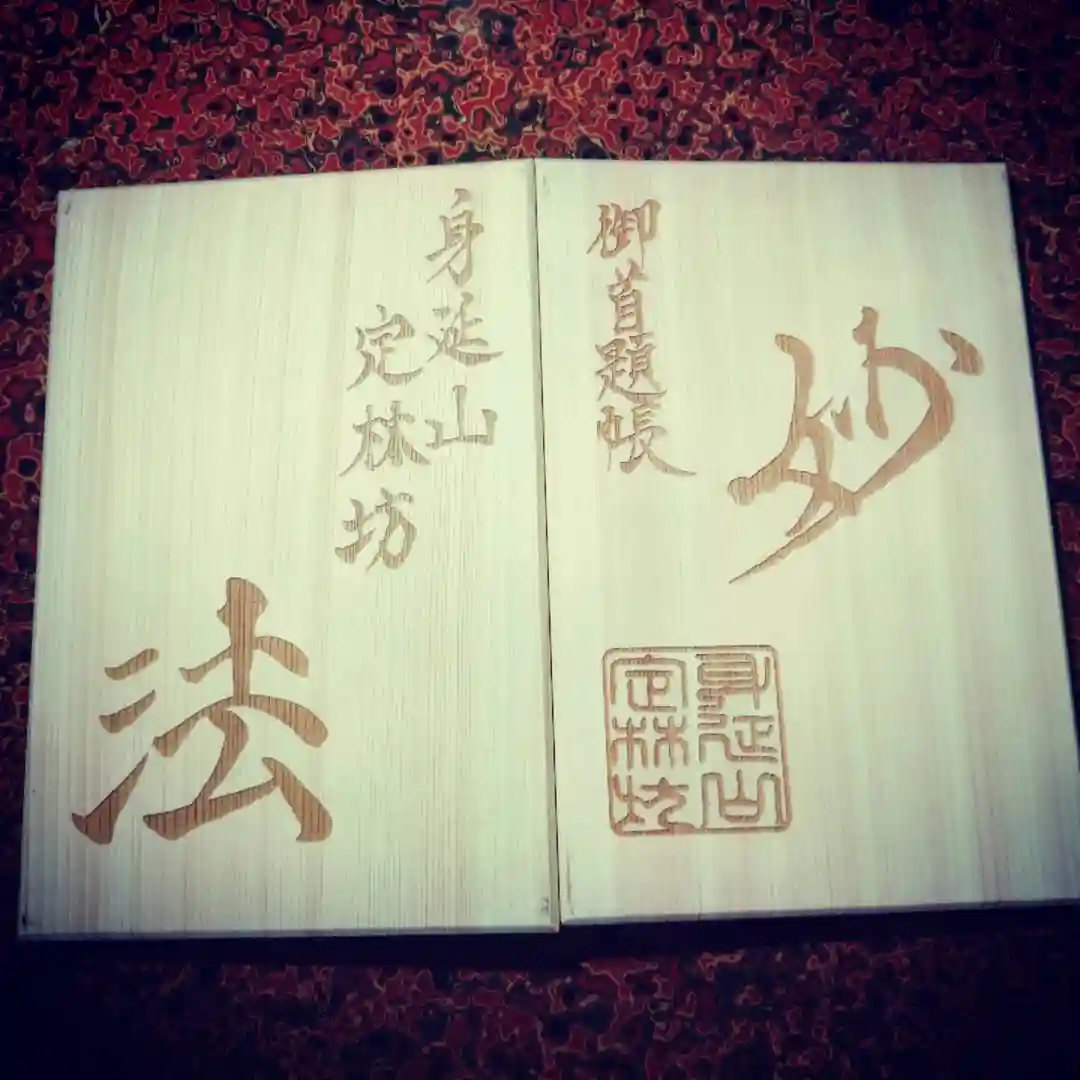 妙
御首題帳
身延山
定林坊
身延山
定林坊
法